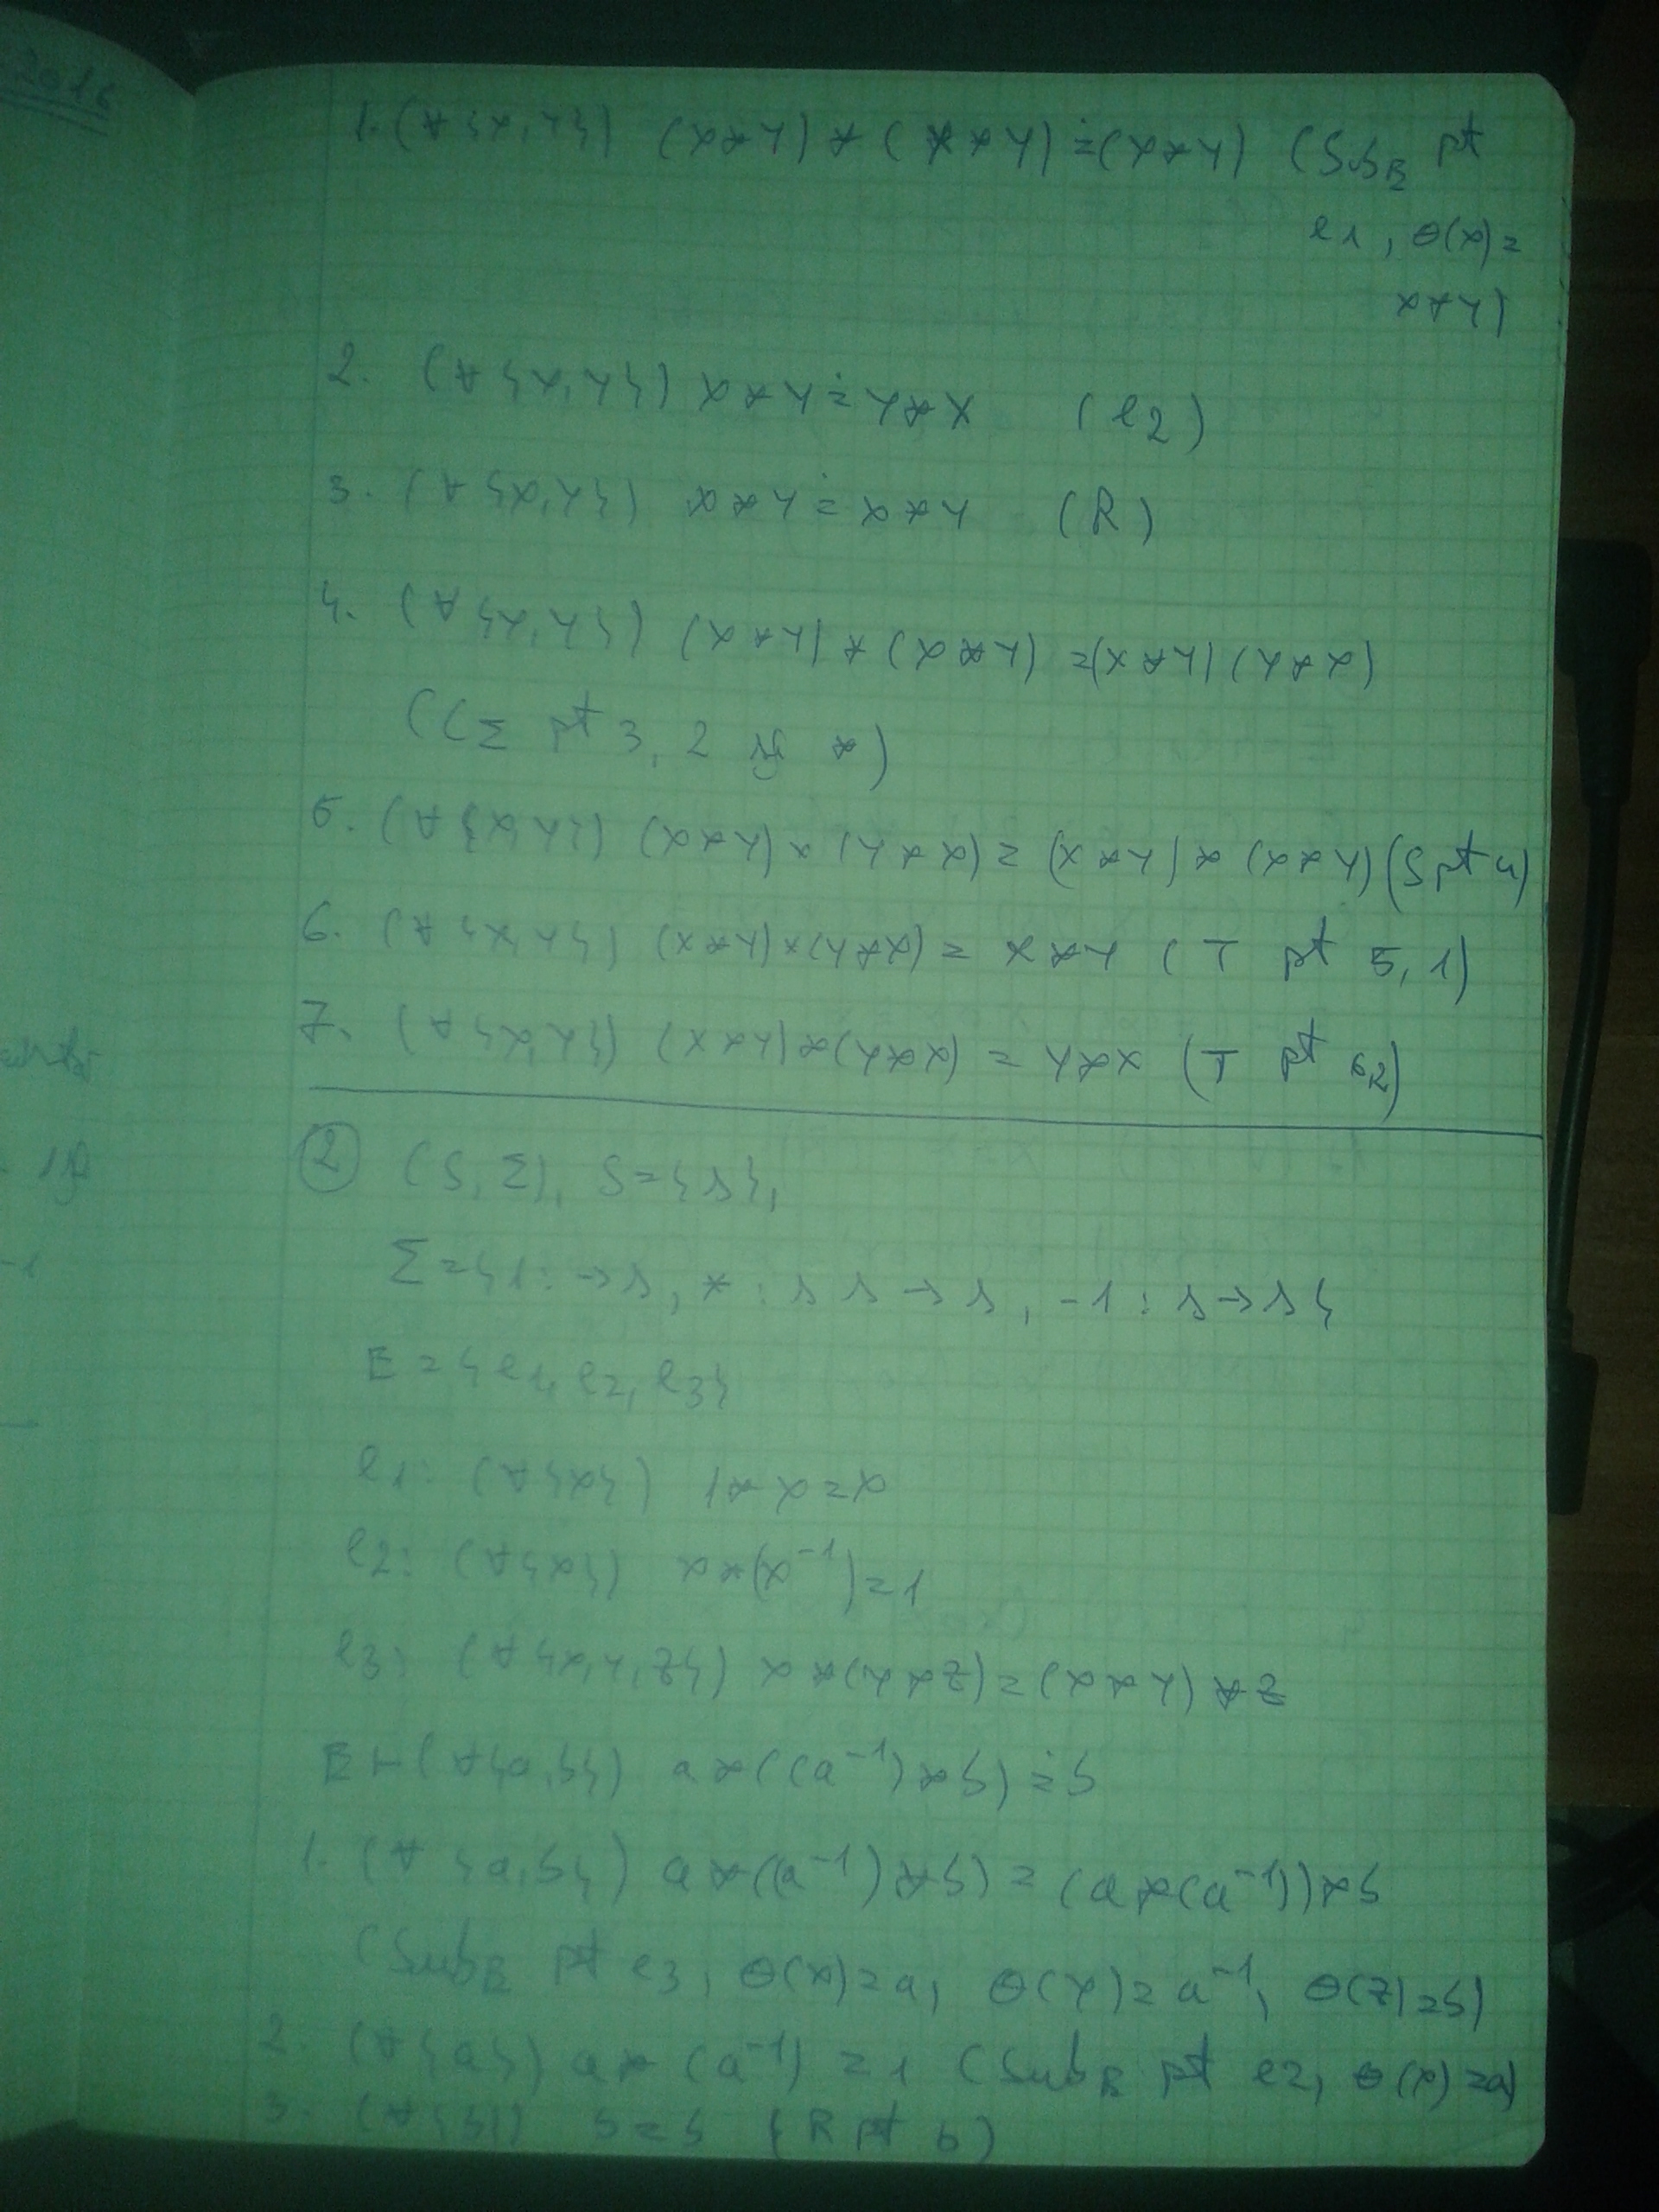 2016
1. (∀{x,y}) (x*y)*(x*y) ≐ (x*y) (Sub_E pt
e1, θ(x)=
x*y)
2. (∀{x,y}) x*y ≐ y*x (e2)
3. (∀{x,y}) x*y ≐ x*y (R)
4. (∀{x,y}) (x*y)*(x*y) = (x*y)(y*x)
(CΣ pt 3, 2 și *)
5. (∀{x,y}) (x*y)*(y*x) = (x*y)*(x*y) (S pt 4)
6. (∀{x,y}) (x*y)*(y*x) = x*y (T pt 5,1)
7. (∀{x,y}) (x*y)*(y*x) = y*x (T pt 6,2)
② (S,Σ), S={s},
Σ={1: →s, *: s s →s, -1: s→s}
E={e1, e2, e3}
e1: (∀{x}) 1*x=x
e2: (∀{x}) x*(x⁻¹)=1
e3: (∀{x,y,z}) x*(y*z)=(x*y)*z
E ⊢ (∀{a,b}) a*((a⁻¹)*b) ≐ b
1. (∀{a,b}) a*((a⁻¹)*b) = (a*(a⁻¹))*b
(Sub_E pt e3, θ(x)=a, θ(y)=a⁻¹, θ(z)=b)
2. (∀{a}) a*(a⁻¹) = 1 (Sub_E pt e2, θ(x)=a)
3. (∀{b}) b=b (R pt b)